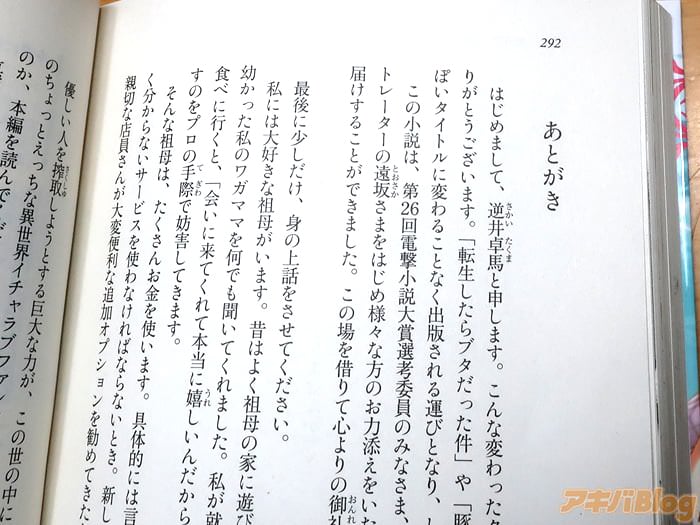 292
あとがき
はじめまして、逆井卓馬と申します。こんな変わったタ
りがとうございます。「転生したらブタだった件」や「豚
ぽいタイトルに変わることなく出版される運びとなり、
この小説は、第26回電撃小説大賞選考委員のみなさま、
トレーターの遠坂さまをはじめ様々な方のお力添えをいた
届けすることができました。この場を借りて心よりの御礼
最後に少しだけ、身の上話をさせてください。
私には大好きな祖母がいます。昔はよく祖母の家に遊び
幼かった私のワガママを何でも聞いてくれました。私が就
食べに行くと、「会いに来てくれて本当に嬉しいんだから
すのをプロの手際で妨害してきます。
そんな祖母は、たくさんお金を使います。具体的には言
く分からないサービスを使わなければならないとき。新し
親切な店員さんが大変便利な追加オプションを勧めてきた
優しい人を搾取しようとする巨大な力が、この世の中に
のちょっとえっちな異世界イチャラブファン
のか、本編を読んで
アキバBlog